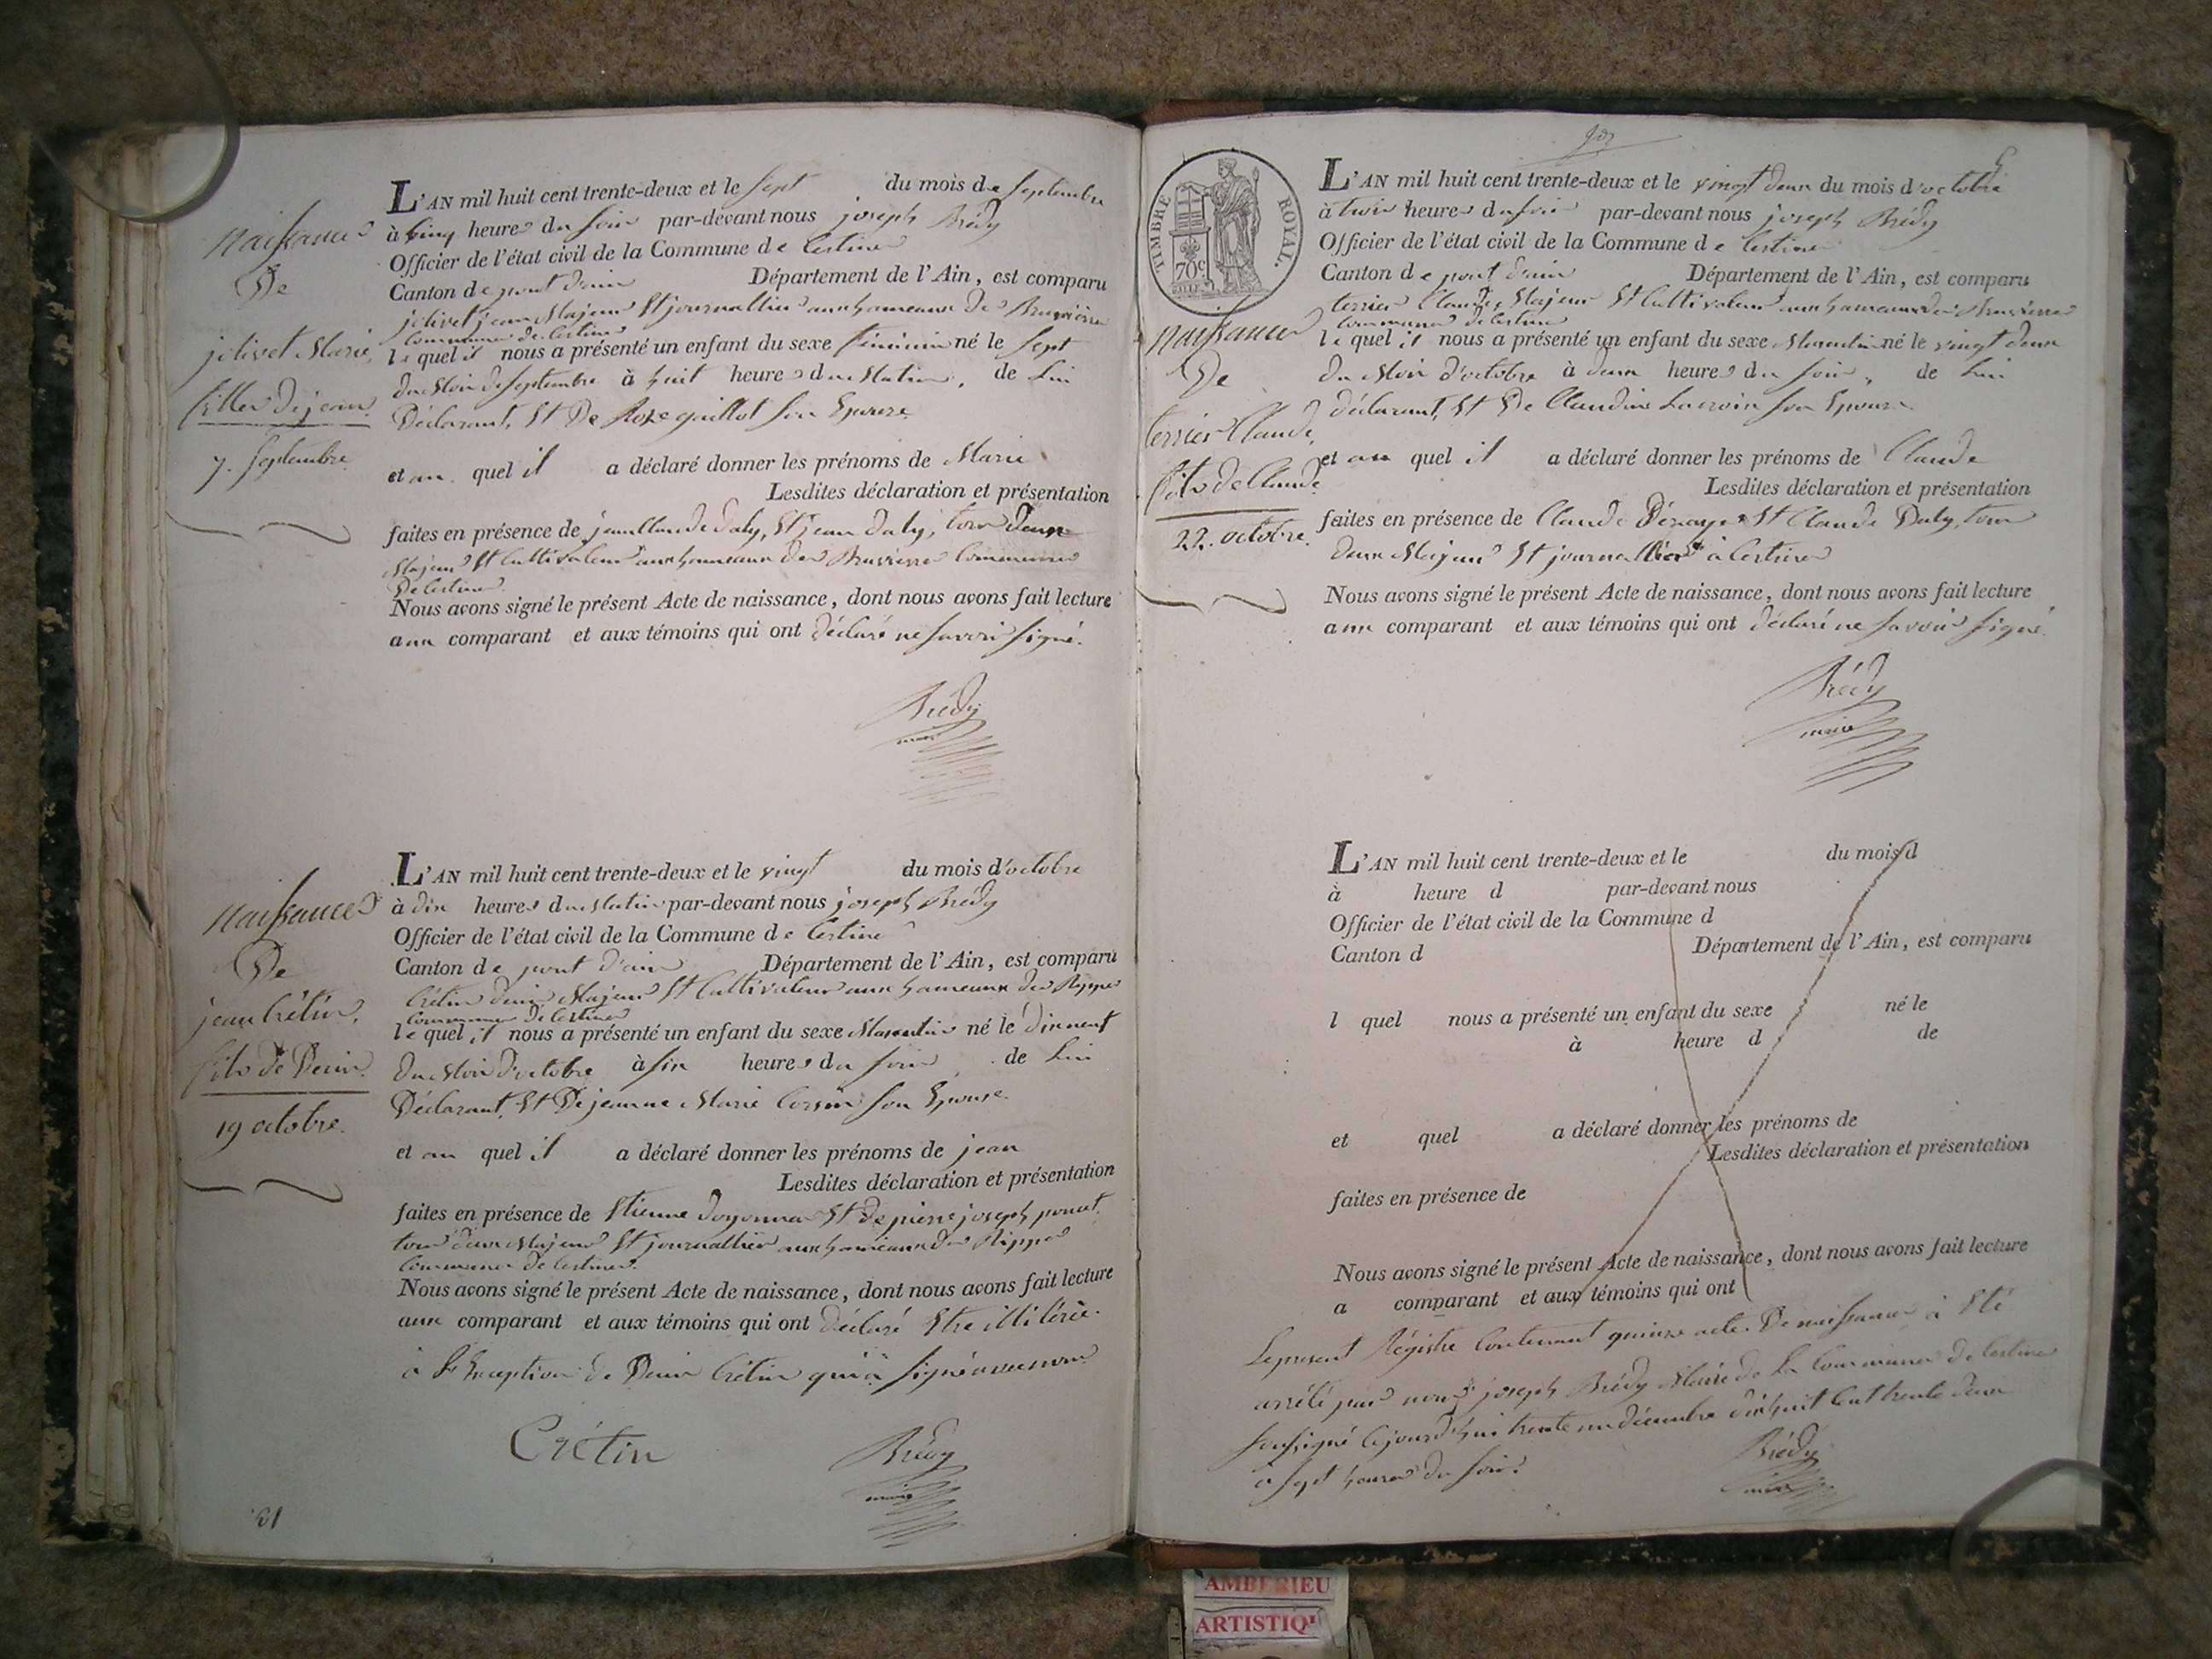 Naissance
De
jolivet Marie,
fille de jean
7. Septembre
L'AN mil huit cent trente-deux et le sept du mois de Septembre
à cinq heures du soir par-devant nous joseph Brédy
Officier de l'état civil de la Commune de Certines
Canton de pont d'ain Département de l'Ain, est comparu
jolivet jean Majeur Et journallier aux hameaux des Bruyières
Commune de Certines
lequel il nous a présenté un enfant du sexe féminin né le sept
du Mois de Septembre à huit heures du Matin, de lui
Déclarant, Et De Roze guillot son Epouse
et au quel il a déclaré donner les prénoms de Marie
Lesdites déclaration et présentation
faites en présence de jean Claude daly, Et jean daly, tous deux
Majeur Et Cultivateur aux hameaux des Bruyières Commune
De Certines
Nous avons signé le présent Acte de naissance, dont nous avons fait lecture
aux comparant et aux témoins qui ont déclaré ne savoir signé.
Brédy
maire
Naissance
De
jean Crétin,
fils de Denis
19 octobre.
L'AN mil huit cent trente-deux et le vingt du mois d'octobre
à dix heures du Matin par-devant nous joseph Brédy
Officier de l'état civil de la Commune de Certines
Canton de pont d'ain Département de l'Ain, est comparu
Crétin denis Majeur Et Cultivateur aux hameaux des Rippes
Commune de Certines
lequel il nous a présenté un enfant du sexe Masculin né le dixneuf
du Mois d'octobre à six heures du soir, de lui
Déclarant, Et De jeanne Marie son Epouse
et au quel il a déclaré donner les prénoms de jean
Lesdites déclaration et présentation
faites en présence de Etienne Et de pierre joseph poncet
tous deux Majeur Et journallier aux hameaux des Rippes
Commune de Certines.
Nous avons signé le présent Acte de naissance, dont nous avons fait lecture
aux comparant et aux témoins qui ont déclaré Etre illitéré
à l'Exception de Denis Crétin qui à signé avec nous
Crétin
Brédy
maire
TIMBRE ROYAL.
70c
Naissance
De
terrier Claude,
fils de Claude
22. octobre.
L'AN mil huit cent trente-deux et le vingt deux du mois d'octobre
à trois heures du soir par-devant nous joseph Brédy
Officier de l'état civil de la Commune de Certines
Canton de pont d'ain Département de l'Ain, est comparu
terrier Claude, Majeur Et Cultivateur aux hameaux des Bruyières
Commune de Certines
lequel il nous a présenté un enfant du sexe Masculin né le vingt deux
du Mois d'octobre à deux heures du soir, de lui
déclarant, Et De Claudine Lacroix son Epouse
et au quel il a déclaré donner les prénoms de Claude
Lesdites déclaration et présentation
faites en présence de Claude Et Claude Daly, tous
deux Majeur Et journallier à Certines
Nous avons signé le présent Acte de naissance, dont nous avons fait lecture
aux comparant et aux témoins qui ont déclaré ne savoir signé.
Brédy
maire
L'AN mil huit cent trente-deux et le du mois d
à heure d par-devant nous
Officier de l'état civil de la Commune d
Canton d Département de l'Ain, est comparu
l quel nous a présenté un enfant du sexe né le
à heure d de
et quel a déclaré donner les prénoms de
Lesdites déclaration et présentation
faites en présence de
Nous avons signé le présent Acte de naissance, dont nous avons fait lecture
a comparant et aux témoins qui ont
Le présent Régistre Contenant quinze acte De naissance à Eté
arrêté par nous joseph Brédy Maire de la Commune de Certines
soussigné Cejourd'hui trente un décembre dixhuit Cent trente deux
à sept heures du soir.
Brédy
maire
AMBERIEU
ARTISTIQ